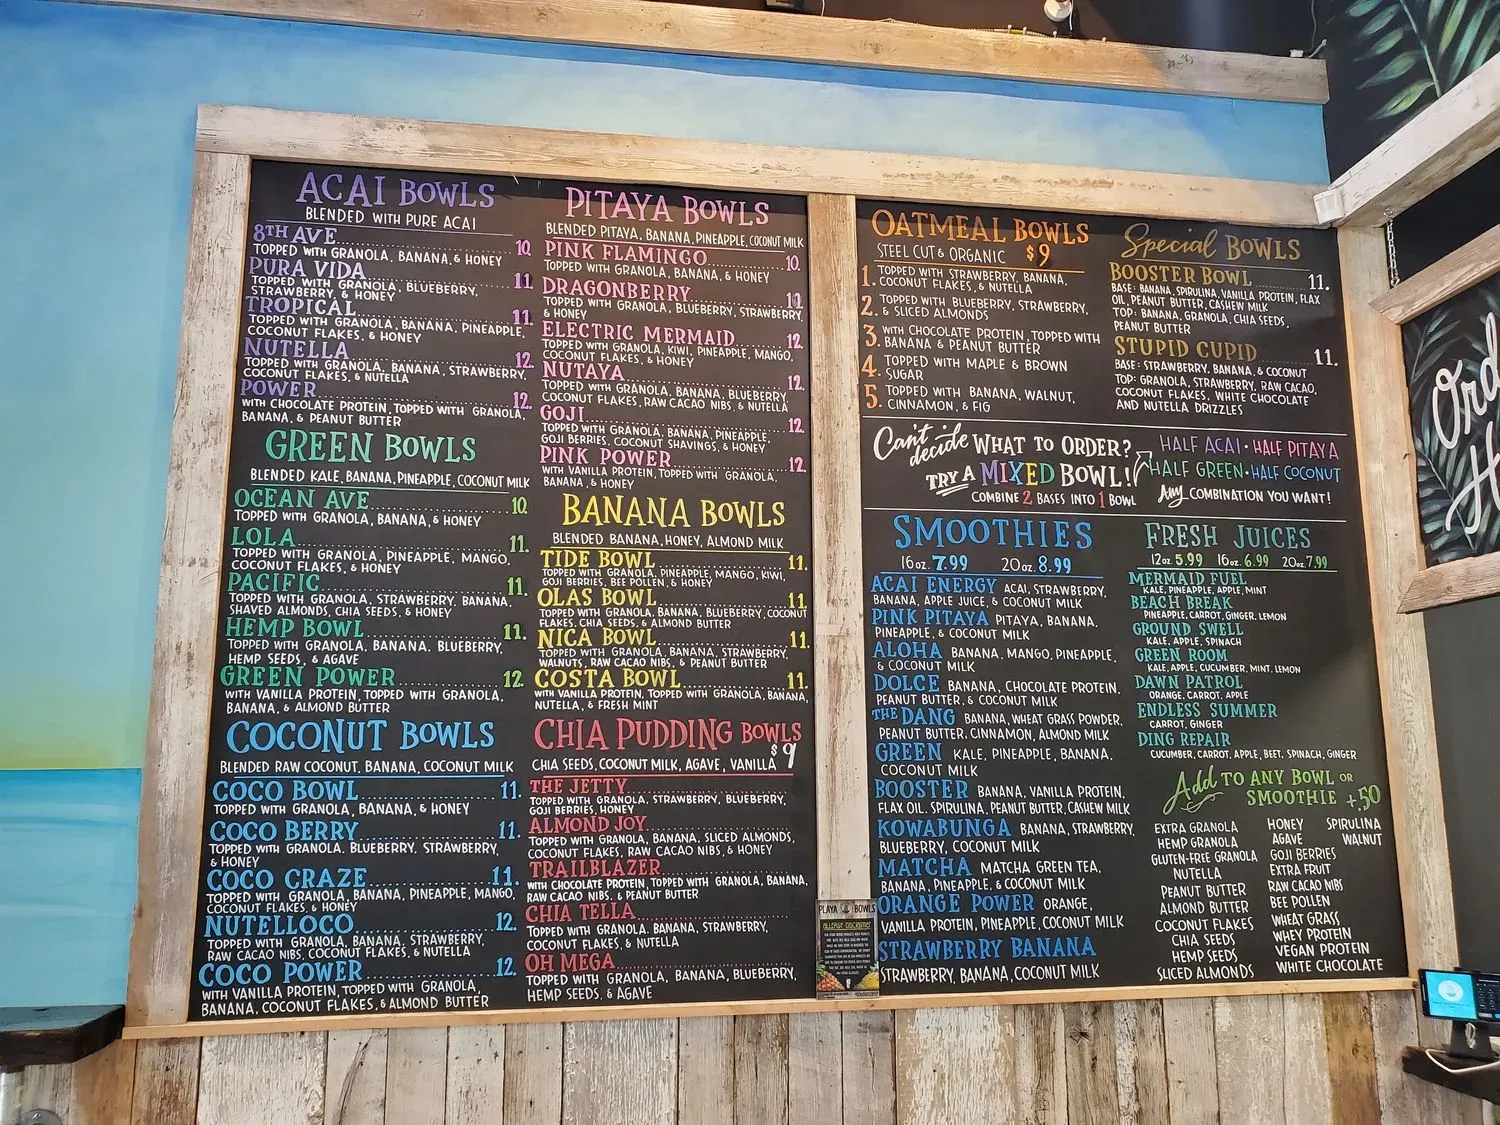 ACAI BOWLS
BLENDED WITH PURE ACAI
8TH AVE 10.
TOPPED WITH GRANOLA, BANANA, & HONEY
PURA VIDA 11.
TOPPED WITH GRANOLA, BLUEBERRY,
STRAWBERRY, & HONEY
TROPICAL 11.
TOPPED WITH GRANOLA, BANANA, PINEAPPLE,
COCONUT FLAKES, & HONEY
NUTELLA 12.
TOPPED WITH GRANOLA, BANANA, STRAWBERRY,
COCONUT FLAKES, & NUTELLA
POWER 12.
WITH CHOCOLATE PROTEIN, TOPPED WITH GRANOLA,
BANANA, & PEANUT BUTTER
GREEN BOWLS
BLENDED KALE, BANANA, PINEAPPLE, COCONUT MILK
OCEAN AVE 10
TOPPED WITH GRANOLA, BANANA, & HONEY
LOLA 11.
TOPPED WITH GRANOLA, PINEAPPLE, MANGO,
COCONUT FLAKES, & HONEY
PACIFIC 11.
TOPPED WITH GRANOLA, STRAWBERRY, BANANA,
SHAVED ALMONDS, CHIA SEEDS, & HONEY
HEMP BOWL 11.
TOPPED WITH GRANOLA, BANANA, BLUEBERRY,
HEMP SEEDS, & AGAVE
GREEN POWER 12
WITH VANILLA PROTEIN, TOPPED WITH GRANOLA,
BANANA, & ALMOND BUTTER
COCONUT BOWLS
BLENDED RAW COCONUT, BANANA, COCONUT MILK
COCO BOWL 11.
TOPPED WITH GRANOLA, BANANA, & HONEY
COCO BERRY 11.
TOPPED WITH GRANOLA, BLUEBERRY, STRAWBERRY,
& HONEY
COCO CRAZE 11.
TOPPED WITH GRANOLA, BANANA, PINEAPPLE, MANGO,
COCONUT FLAKES, & HONEY
NUTELLOCO 12.
TOPPED WITH GRANOLA, BANANA, STRAWBERRY,
RAW CACAO NIBS, COCONUT FLAKES, & NUTELLA
COCO POWER 12.
WITH VANILLA PROTEIN, TOPPED WITH GRANOLA,
BANANA, COCONUT FLAKES, & ALMOND BUTTER
PITAYA BOWLS
BLENDED PITAYA, BANANA, PINEAPPLE, COCONUT MILK
PINK FLAMINGO 10.
TOPPED WITH GRANOLA, BANANA, & HONEY
DRAGONBERRY
TOPPED WITH GRANOLA, BLUEBERRY, STRAWBERRY,
& HONEY
ELECTRIC MERMAID 12.
TOPPED WITH GRANOLA, KIWI, PINEAPPLE, MANGO,
COCONUT FLAKES, & HONEY
NUTAYA 12.
TOPPED WITH GRANOLA, BANANA, BLUEBERRY,
COCONUT FLAKES, RAW CACAO NIBS, & NUTELLA
GOJI 12.
TOPPED WITH GRANOLA, BANANA, PINEAPPLE,
GOJI BERRIES, COCONUT SHAVINGS, & HONEY
PINK POWER 12.
WITH VANILLA PROTEIN, TOPPED WITH GRANOLA,
BANANA, & HONEY
BANANA BOWLS
BLENDED BANANA, HONEY, ALMOND MILK
TIDE BOWL 11.
TOPPED WITH GRANOLA, PINEAPPLE, MANGO, KIWI,
GOJI BERRIES, BEE POLLEN, & HONEY
OLAS BOWL 11.
TOPPED WITH GRANOLA, BANANA, BLUEBERRY, COCONUT
FLAKES, CHIA SEEDS, & ALMOND BUTTER
NICA BOWL 11.
TOPPED WITH GRANOLA, BANANA, STRAWBERRY,
WALNUTS, RAW CACAO NIBS, & PEANUT BUTTER
COSTA BOWL 11.
WITH VANILLA PROTEIN, TOPPED WITH GRANOLA, BANANA,
NUTELLA, & FRESH MINT
CHIA PUDDING BOWLS
$9
CHIA SEEDS, COCONUT MILK, AGAVE, VANILLA
THE JETTY
TOPPED WITH GRANOLA, STRAWBERRY, BLUEBERRY,
GOJI BERRIES, HONEY
ALMOND JOY
TOPPED WITH GRANOLA, BANANA, SLICED ALMONDS,
COCONUT FLAKES, RAW CACAO NIBS, & HONEY
TRAILBLAZER
WITH CHOCOLATE PROTEIN, TOPPED WITH GRANOLA, BANANA,
RAW CACAO NIBS, & PEANUT BUTTER
CHIA TELLA
TOPPED WITH GRANOLA, BANANA, STRAWBERRY,
COCONUT FLAKES, & NUTELLA
OH MEGA
TOPPED WITH GRANOLA, BANANA, BLUEBERRY,
HEMP SEEDS, & AGAVE
PLAYA BOWLS
ALLERGY DISCLAIMER
OATMEAL BOWLS
STEEL CUT & ORGANIC $9
1. TOPPED WITH STRAWBERRY, BANANA,
COCONUT FLAKES, & NUTELLA
2. TOPPED WITH BLUEBERRY, STRAWBERRY,
& SLICED ALMONDS
3. WITH CHOCOLATE PROTEIN, TOPPED WITH
BANANA & PEANUT BUTTER
4. TOPPED WITH MAPLE & BROWN
SUGAR
5. TOPPED WITH BANANA, WALNUT,
CINNAMON, & FIG
Special BOWLS
BOOSTER BOWL 11.
BASE: BANANA, SPIRULINA, VANILLA PROTEIN, FLAX
OIL, PEANUT BUTTER, CASHEW MILK
TOP: BANANA, GRANOLA, CHIA SEEDS,
PEANUT BUTTER
STUPID CUPID 11.
BASE: STRAWBERRY, BANANA, & COCONUT
TOP: GRANOLA, STRAWBERRY, RAW CACAO,
COCONUT FLAKES, WHITE CHOCOLATE
AND NUTELLA DRIZZLES
Can't decide WHAT TO ORDER?
TRY A MIXED BOWL!
COMBINE 2 BASES INTO 1 BOWL
HALF ACAI • HALF PITAYA
HALF GREEN • HALF COCONUT
Any COMBINATION YOU WANT!
SMOOTHIES
16 oz. 7.99 20 oz. 8.99
ACAI ENERGY ACAI, STRAWBERRY,
BANANA, APPLE JUICE, & COCONUT MILK
PINK PITAYA PITAYA, BANANA,
PINEAPPLE, & COCONUT MILK
ALOHA BANANA, MANGO, PINEAPPLE,
& COCONUT MILK
DOLCE BANANA, CHOCOLATE PROTEIN,
PEANUT BUTTER, & COCONUT MILK
THE DANG BANANA, WHEAT GRASS POWDER,
PEANUT BUTTER, CINNAMON, ALMOND MILK
GREEN KALE, PINEAPPLE, BANANA,
COCONUT MILK
BOOSTER BANANA, VANILLA PROTEIN,
FLAX OIL, SPIRULINA, PEANUT BUTTER, CASHEW MILK
KOWABUNGA BANANA, STRAWBERRY,
BLUEBERRY, COCONUT MILK
MATCHA MATCHA GREEN TEA,
BANANA, PINEAPPLE, & COCONUT MILK
ORANGE POWER ORANGE,
VANILLA PROTEIN, PINEAPPLE, COCONUT MILK
STRAWBERRY BANANA
STRAWBERRY, BANANA, COCONUT MILK
FRESH JUICES
12oz. 5.99 16oz. 6.99 20oz. 7.99
MERMAID FUEL
KALE, PINEAPPLE, APPLE, MINT
BEACH BREAK
PINEAPPLE, CARROT, GINGER, LEMON
GROUND SWELL
KALE, APPLE, SPINACH
GREEN ROOM
KALE, APPLE, CUCUMBER, MINT, LEMON
DAWN PATROL
ORANGE, CARROT, APPLE
ENDLESS SUMMER
CARROT, GINGER
DING REPAIR
CUCUMBER, CARROT, APPLE, BEET, SPINACH, GINGER
Add TO ANY BOWL OR
SMOOTHIE +.50
EXTRA GRANOLA
HEMP GRANOLA
GLUTEN-FREE GRANOLA
NUTELLA
PEANUT BUTTER
ALMOND BUTTER
COCONUT FLAKES
CHIA SEEDS
HEMP SEEDS
SLICED ALMONDS
HONEY
AGAVE
GOJI BERRIES
EXTRA FRUIT
RAW CACAO NIBS
BEE POLLEN
WHEAT GRASS
WHEY PROTEIN
VEGAN PROTEIN
WHITE CHOCOLATE
SPIRULINA
WALNUT
Ord
H